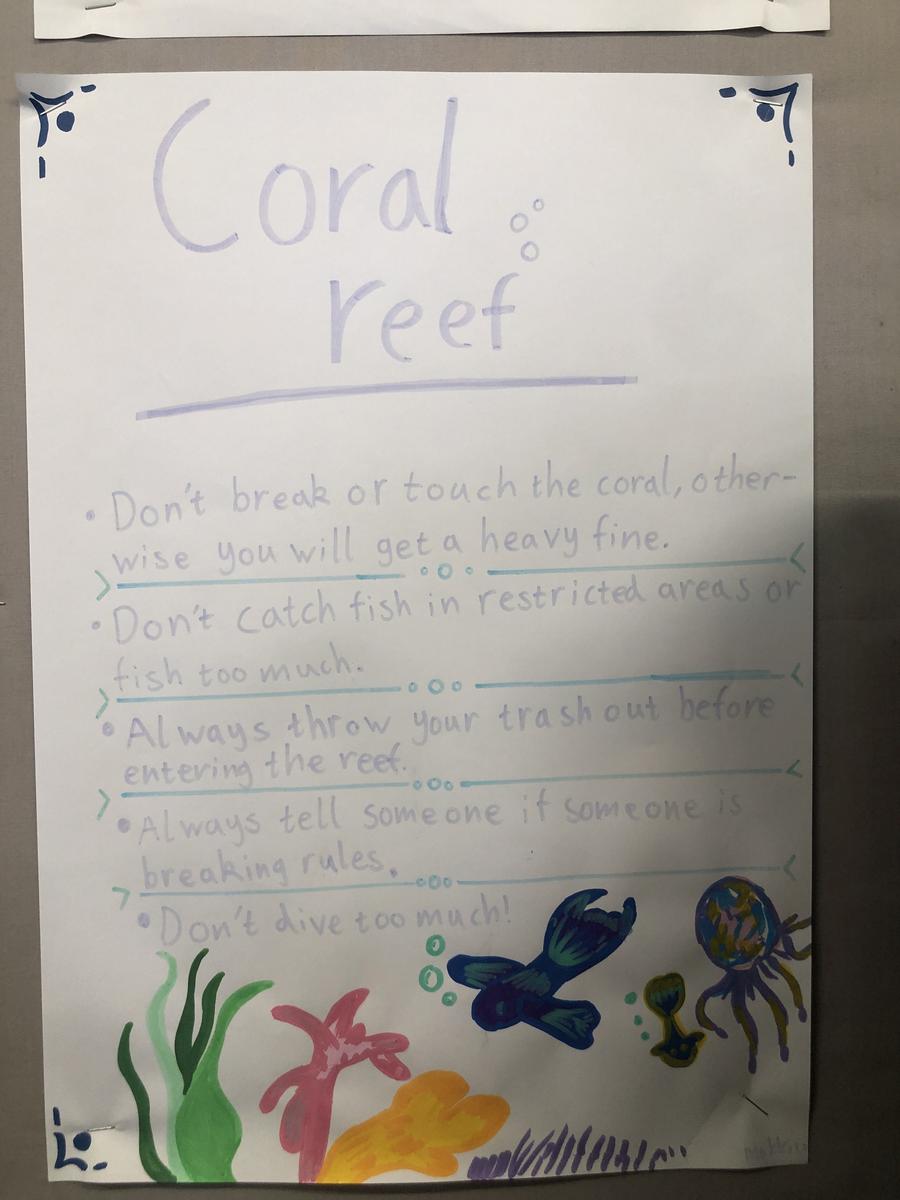 Coral
reef
• Don't break or touch the coral, other-
wise you will get a heavy fine.
• Don't catch fish in restricted areas or
fish too much.
• Always throw your trash out before
entering the reef.
• Always tell someone if someone is
breaking rules.
• Don't dive too much!